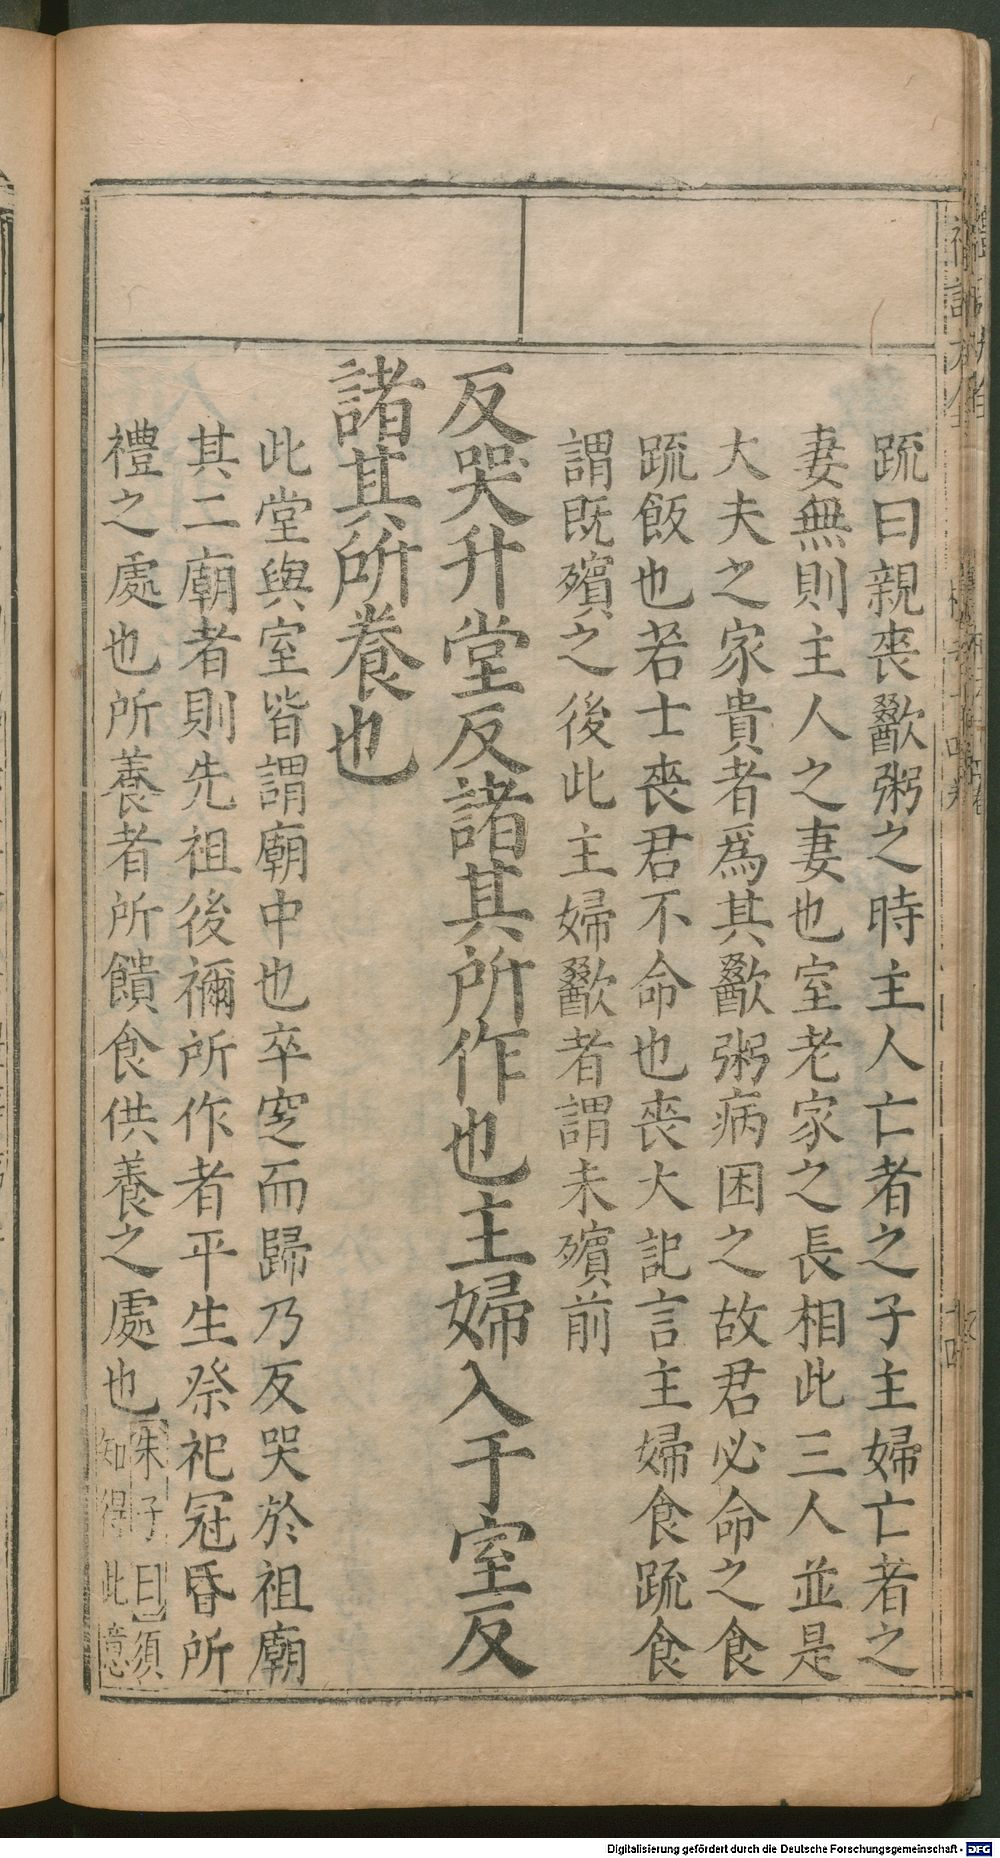 疏曰親喪歠粥之時主人亡者之子主婦亡者之
妻無則主人之妻也室老家之長相此三人並是
大夫之家貴者爲其歠粥病困之故君必命之食
疏飯也若士喪君不命也喪大記言主婦食疏食
謂旣殯之後此主婦歠者謂未殯前
反哭升堂反諸其所作也主婦入于室反
諸其所養也
此堂與室皆謂廟中也卒窆而歸乃反哭於祖廟
其二廟者則先祖後禰所作者平生祭祀冠昏所
禮之處也所養者所饋食供養之處也朱子曰須
知得此意
Digitalisierung gefördert durch die Deutsche Forschungsgemeinschaft - DFG